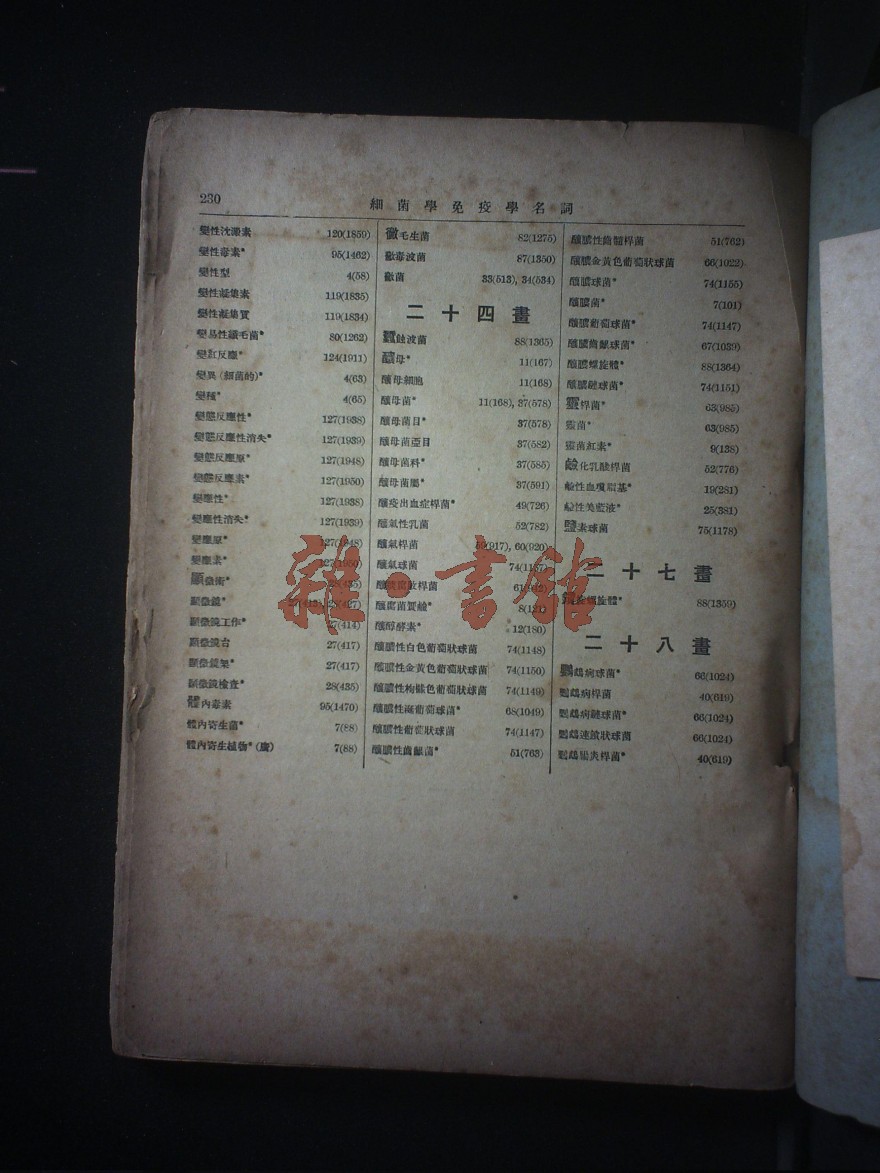 230
細菌學免疫學名詞
變性沈澱素 120(1859)
變性毒素* 95(1462)
變性型 4(58)
變性凝集素 119(1835)
變性凝集質 119(1834)
變易性纖毛菌* 80(1262)
變紅反應* 124(1911)
變異(細菌的)* 4(63)
變種* 4(65)
變態反應性* 127(1938)
變態反應性消失* 127(1939)
變態反應原* 127(1948)
變態反應素* 127(1950)
變應性* 127(1938)
變應性消失* 127(1939)
變應原* 127(1948)
變應素* 127(1950)
顯微術*
顯微鏡*
顯微鏡工作* 27(414)
顯微鏡台 27(417)
顯微鏡架* 27(417)
顯微鏡檢查* 28(435)
體內毒素 95(1470)
體內寄生菌* 7(88)
體內寄生植物*(廢) 7(88)
黴毛生菌 82(1275)
黴毒波菌 87(1350)
黴菌 33(513), 34(534)
二十四畫
蠶蝕波菌 88(1365)
釀母* 11(167)
釀母細胞 11(168)
釀母菌* 11(168), 37(578)
釀母菌目* 37(578)
釀母菌亞目 37(582)
釀母菌科* 37(585)
釀母菌屬* 37(591)
釀疫出血症桿菌* 49(726)
釀氣性乳菌 52(782)
釀氣桿菌 59(917), 60(920)
釀氣球菌 74(1157)
釀 桿菌
釀 8(121)
釀醇酵素* 12(180)
釀膿性白色葡萄狀球菌 74(1148)
釀膿性金黃色葡萄狀球菌 74(1150)
釀膿性枸櫞色葡萄狀球菌 74(1149)
釀膿性 葡萄球菌* 68(1049)
釀膿性葡萄狀球菌 74(1147)
釀膿性齒齦菌* 51(763)
釀膿性齒髓桿菌 51(762)
釀膿金黃色葡萄狀球菌 66(1022)
釀膿球菌* 74(1155)
釀膿菌* 7(101)
釀膿葡萄球菌* 74(1147)
釀膿齒齦球菌* 67(1039)
釀膿螺旋體* 88(1364)
釀膿鏈球菌* 74(1151)
靈桿菌* 63(985)
靈菌* 63(985)
靈菌紅素* 9(138)
鹼化乳酸桿菌 52(776)
鹼性血項脂基* 19(281)
鹼性美藍液* 25(381)
鹽素球菌 75(1178)
二十七畫
螺旋體* 88(1359)
二十八畫
鸚鵡病球菌* 66(1024)
鸚鵡病桿菌 40(619)
鸚鵡病鏈球菌* 66(1024)
鸚鵡連鎖狀球菌 66(1024)
鸚鵡腸炎桿菌* 40(619)
雜·書館